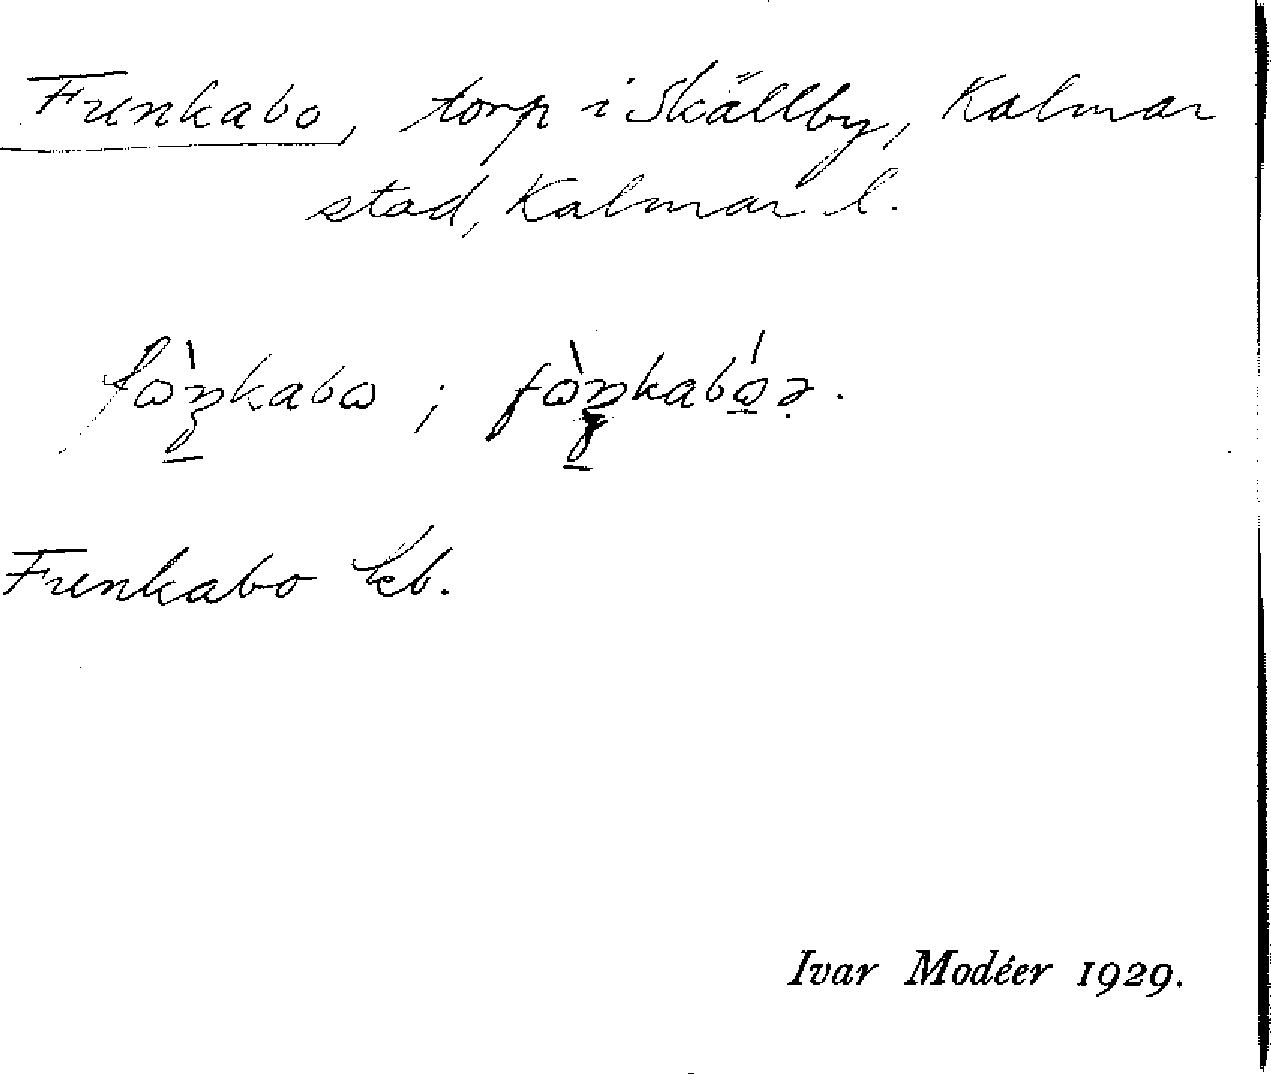 Funkabo, torp i Skällby, Kalmar
stad, Kalmar l.
fꞷ̀ŋkabꞷ ; fꞷ̀ŋkabꞷ́ə.
Funkabo kb.
Ivar Modéer 1929.